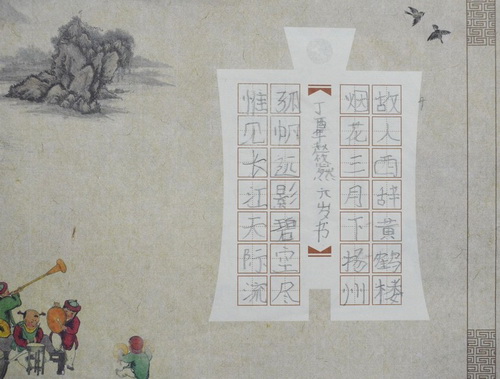 故人西辞黄鹤楼
烟花三月下扬州
丁 悠然 六岁书
孤帆远影碧空尽
惟见长江天际流